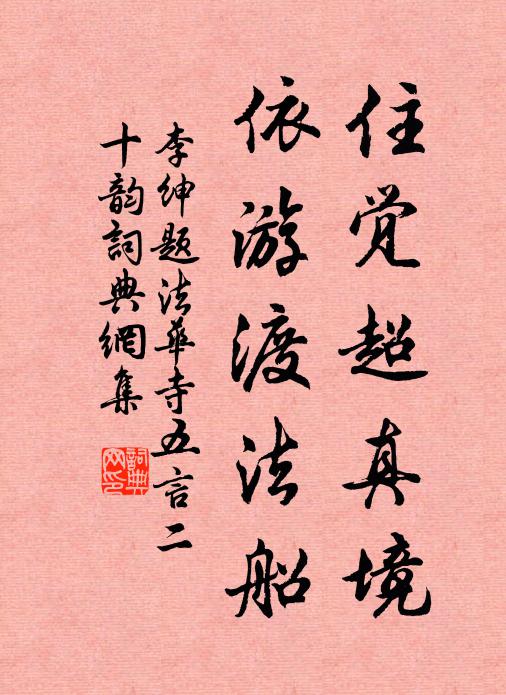 住觉超真境
依游渡法船
李绅题法华寺五言二
十韵词典網集
詞典
网印